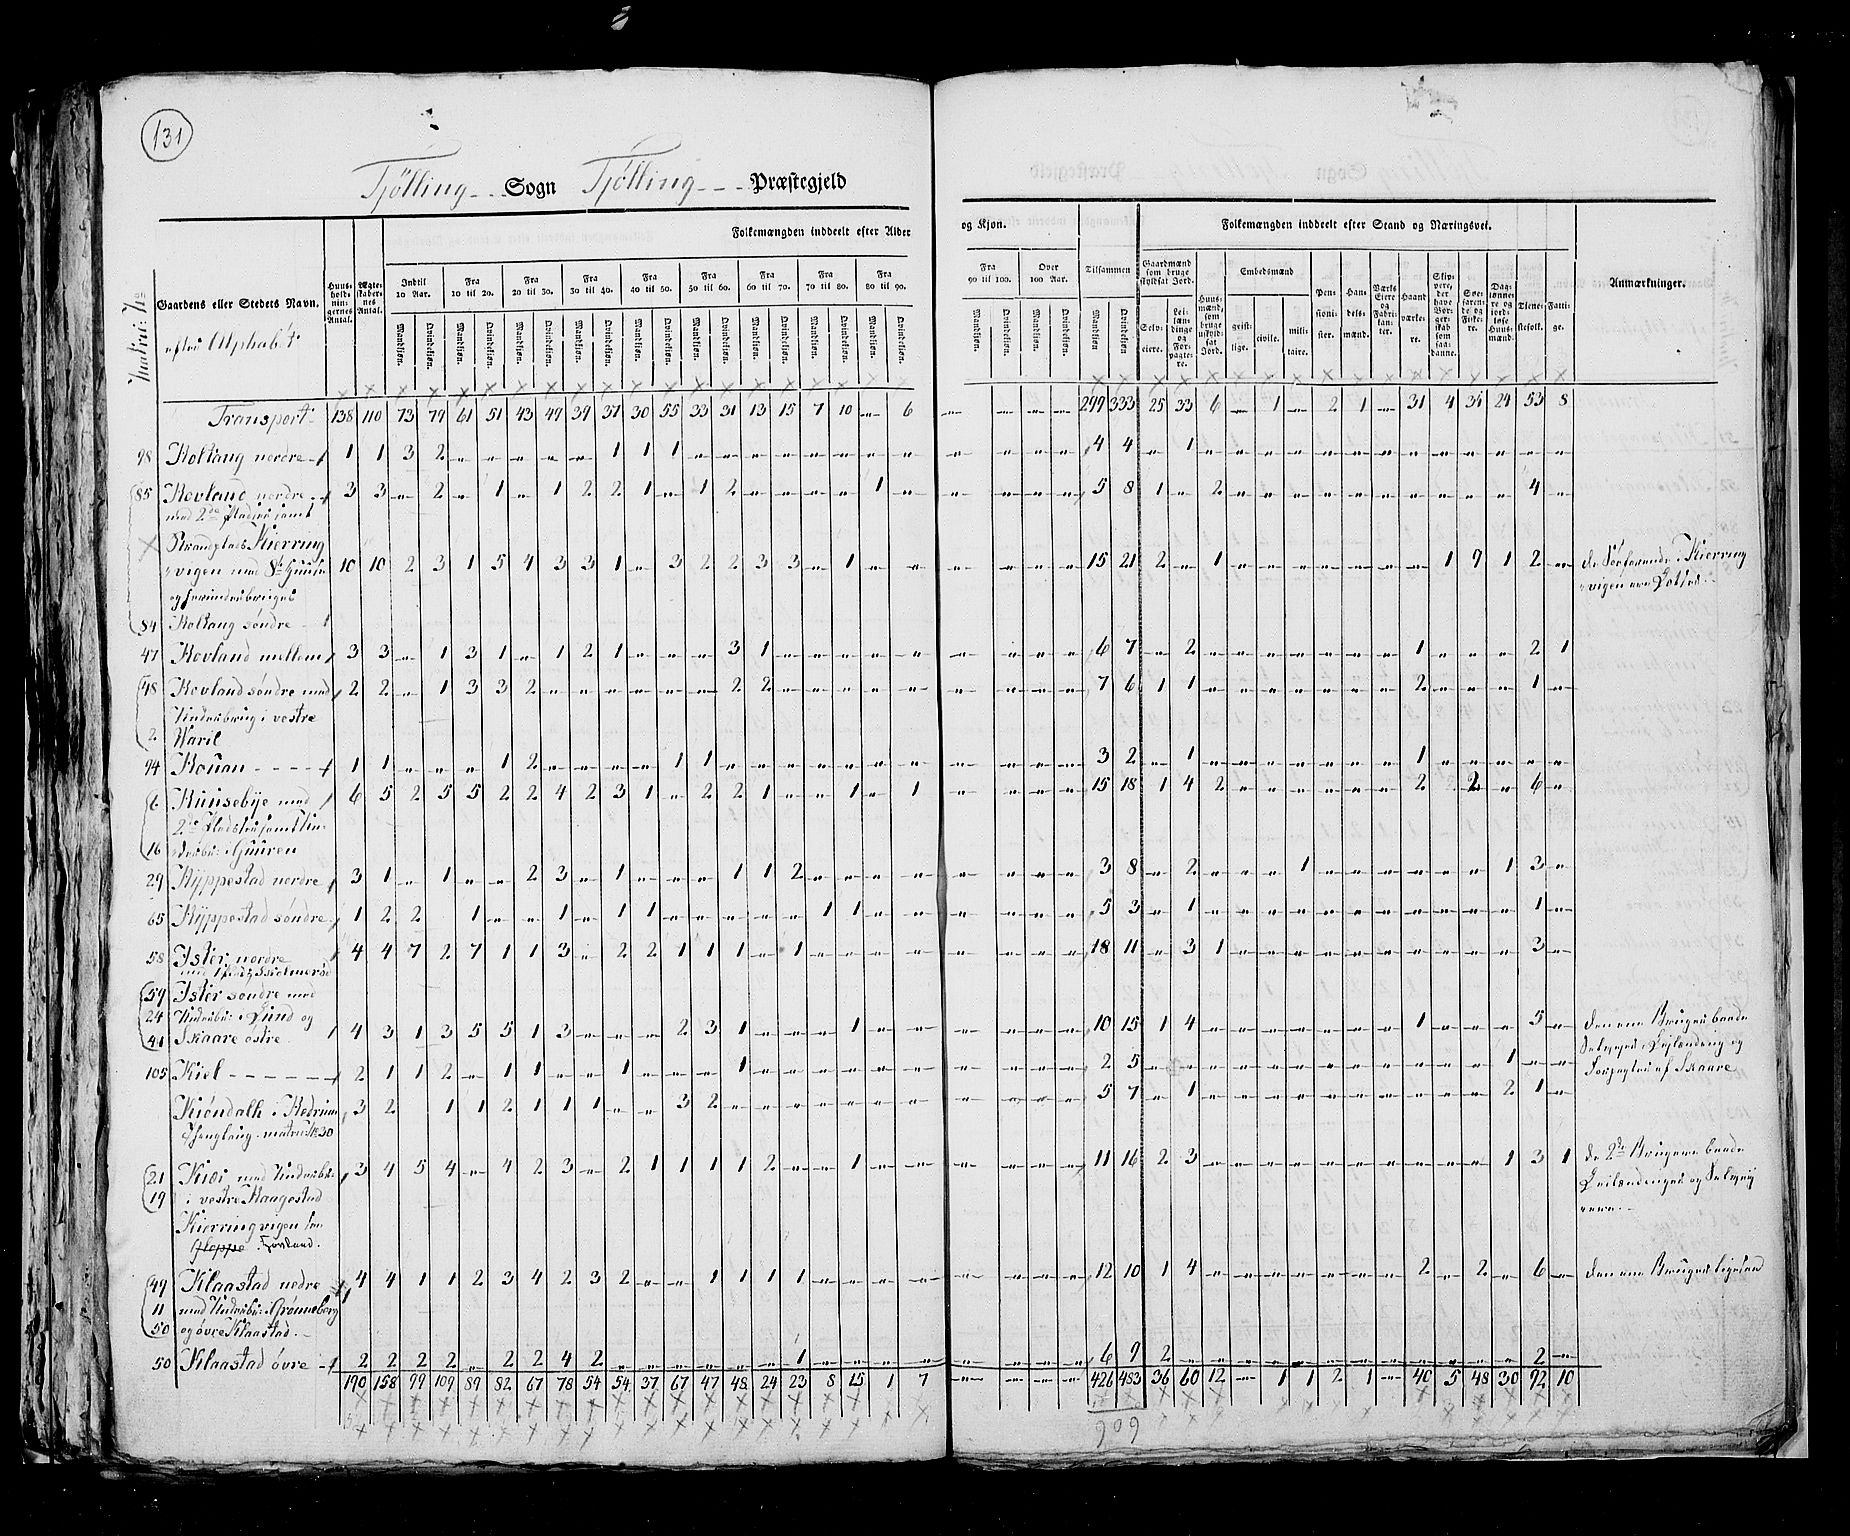 131
Tjölling Sogn Tjölling Præstegjeld
Gaardens eller Stedets Navn. Huusholdningernes Antal. Ægteskabernes Antal. Folkemængden inddeelt efter Alder og Kjøn. Tilsammen Folkemængden inddeelt efter Stand og Næringsvei. Anmærkninger.
Indtil 10 Aar. Fra 10 til 20. Fra 20 til 30. Fra 30 til 40. Fra 40 til 50. Fra 50 til 60. Fra 60 til 70. Fra 70 til 80. Fra 80 til 90. Fra 90 til 100. Over 100 Aar.
Gaardmænd som bruge skyldsat Jord. Huusmænd, som bruge uskyldsat Jord. Embedsmænd Pensionister. Handelsmænd. Værks Eiere og Fabrikanter. Haandværkere. Skippere, der have Borgerskab som saadanne. Søefarende og Fiskere. Daglønnere og jordløse Huusmænd. Tienestefolk. Fattige.
Selveiere. Leilændinge og Forpagtere. geistlige. civile. militaire.
Mandkjøn. Qvindekjøn.
efter Alphabet
Transport: 138 110 73 79 61 51 43 49 39 37 30 55 33 31 13 15 7 10 „ 6 „ „ „ „ 299 333 25 33 6 „ 1 „ 2 1 „ 31 4 34 24 53 8
98 Holtang nordre 1 1 3 2 „ „ „ „ „ 1 1 1 „ „ „ „ „ „ „ „ „ „ „ „ 4 4 „ 1
85 Hovland nordre 3 3 „ 2 „ 1 „ 1 2 2 1 „ 1 2 „ „ „ „ 1 „ „ „ „ „ 5 8 1 „ 2 „ „ „ „ „ „ „ „ „ „ 4 „
med 2de Pladser samt
Strandplads Kierring
vigen med 8 Huuse 10 10 2 3 1 5 4 3 3 1 „ 3 2 2 3 3 „ 1 „ „ „ „ „ „ 15 21 2 „ 1 „ „ „ „ „ „ „ 1 9 1 2 „ de Söefarende i Kierring
vigen ere Lodser
84 Holtang søndre
47 Hovland mellem 3 3 „ 1 3 1 „ 1 2 1 „ „ „ 3 1 „ „ „ „ „ „ „ „ „ 6 7 „ 2 „ „ „ „ „ „ „ 1 „ „ „ 2 1
48 Hovland søndre med 2 2 „ 1 3 3 2 „ „ „ „ „ „ 2 2 „ „ „ „ „ „ „ „ „ 7 6 1 1 „ „ „ „ „ „ „ 2 „ „ „ 1 „
Underbrug i vestre
2 Waril
94 Houan 1 1 „ „ „ 1 2 „ „ „ „ 1 1 „ „ „ „ „ „ „ „ „ „ „ 3 2 „ 1 „ „ „ „ „ „ „ 1 „ „ „ „ „
6 Huusebye med 6 5 2 5 5 2 2 4 2 3 1 „ 2 2 1 „ „ 1 „ 1 „ „ „ „ 15 18 1 4 2 „ „ „ „ „ „ 2 „ 2 „ 6 „
16 Guuren
29 Hyppestad nordre 3 1 „ 1 „ „ 2 3 „ 1 „ „ „ 1 1 2 „ „ „ „ „ „ „ „ 3 8 „ 2 „ „ „ 1 „ „ „ „ „ „ 1 3 „
65 Hyppestad søndre 1 2 2 1 „ „ 1 „ 1 1 „ „ „ „ „ 1 1 „ „ „ „ „ „ 5 3 „ 1 „ „ „ „ „ „ „ „ „ „ „ 1 „
58 Ister nordre 4 4 7 2 7 1 1 3 „ 2 2 1 1 1 „ 1 „ „ „ „ „ „ „ „ 18 11 „ 3 1 „ „ „ „ „ „ „ „ „ „ 3 „
59 Ister søndre med
24 Underbr: i Lund og
41 Skaare östre 4 3 1 3 5 5 1 3 „ „ „ 2 3 1 „ „ „ 1 „ „ „ „ „ „ 10 15 1 4 „ „ „ „ „ „ „ 1 „ „ „ 5 „ den ene Bruger baade
Selveyer, Leylænding og
105 Kiel 2 1 1 2 „ 1 1 „ „ 1 „ „ „ 1 „ „ „ „ „ „ „ „ „ „ 2 5 „ „ „ „ „ „ „ „ „ „ „ „ 1 „ „ Forpagter af Skaare
Kiöndalh i Hedrum 3 2 1 1 2 1 1 1 „ „ 3 2 „ „ „ „ „ „ „ „ „ „ „ 5 7 „ 1 „ „ „ „ „ „ „ „ „ „ 2 1 „
matric: No 30
21 Kisi med Underbr: 3 4 5 4 „ 4 2 3 „ 2 1 1 1 1 2 „ „ 1 „ „ „ „ „ „ 11 16 2 3 „ „ „ „ „ „ „ „ „ „ 1 3 1 de 2de Brugere baade
19 i vestre Haugestad Leilændinger og Selvey
Kierringvigen ere
49 Klaastad nedre 4 4 1 1 2 3 4 2 3 2 „ „ 1 1 1 1 „ „ „ „ „ „ „ „ 12 10 1 4 „ „ „ „ „ „ „ 2 „ 2 „ 6 „ den ene Bruger ligesaa
11 med Underbr: i Grønneberg
50 og øvre Klaastad.
50 Klaastad øvre 2 2 2 2 „ 2 2 4 2 „ „ „ „ „ „ 1 „ „ „ „ „ „ „ „ 6 9 2 „ „ „ „ „ „ „ „ „ „ „ „ 2 „
190 158 99 109 89 82 67 78 54 54 37 67 47 48 24 23 8 15 1 7 „ „ „ „ 426 483 36 60 12 „ 1 1 2 1 „ 40 5 48 30 92 10
909